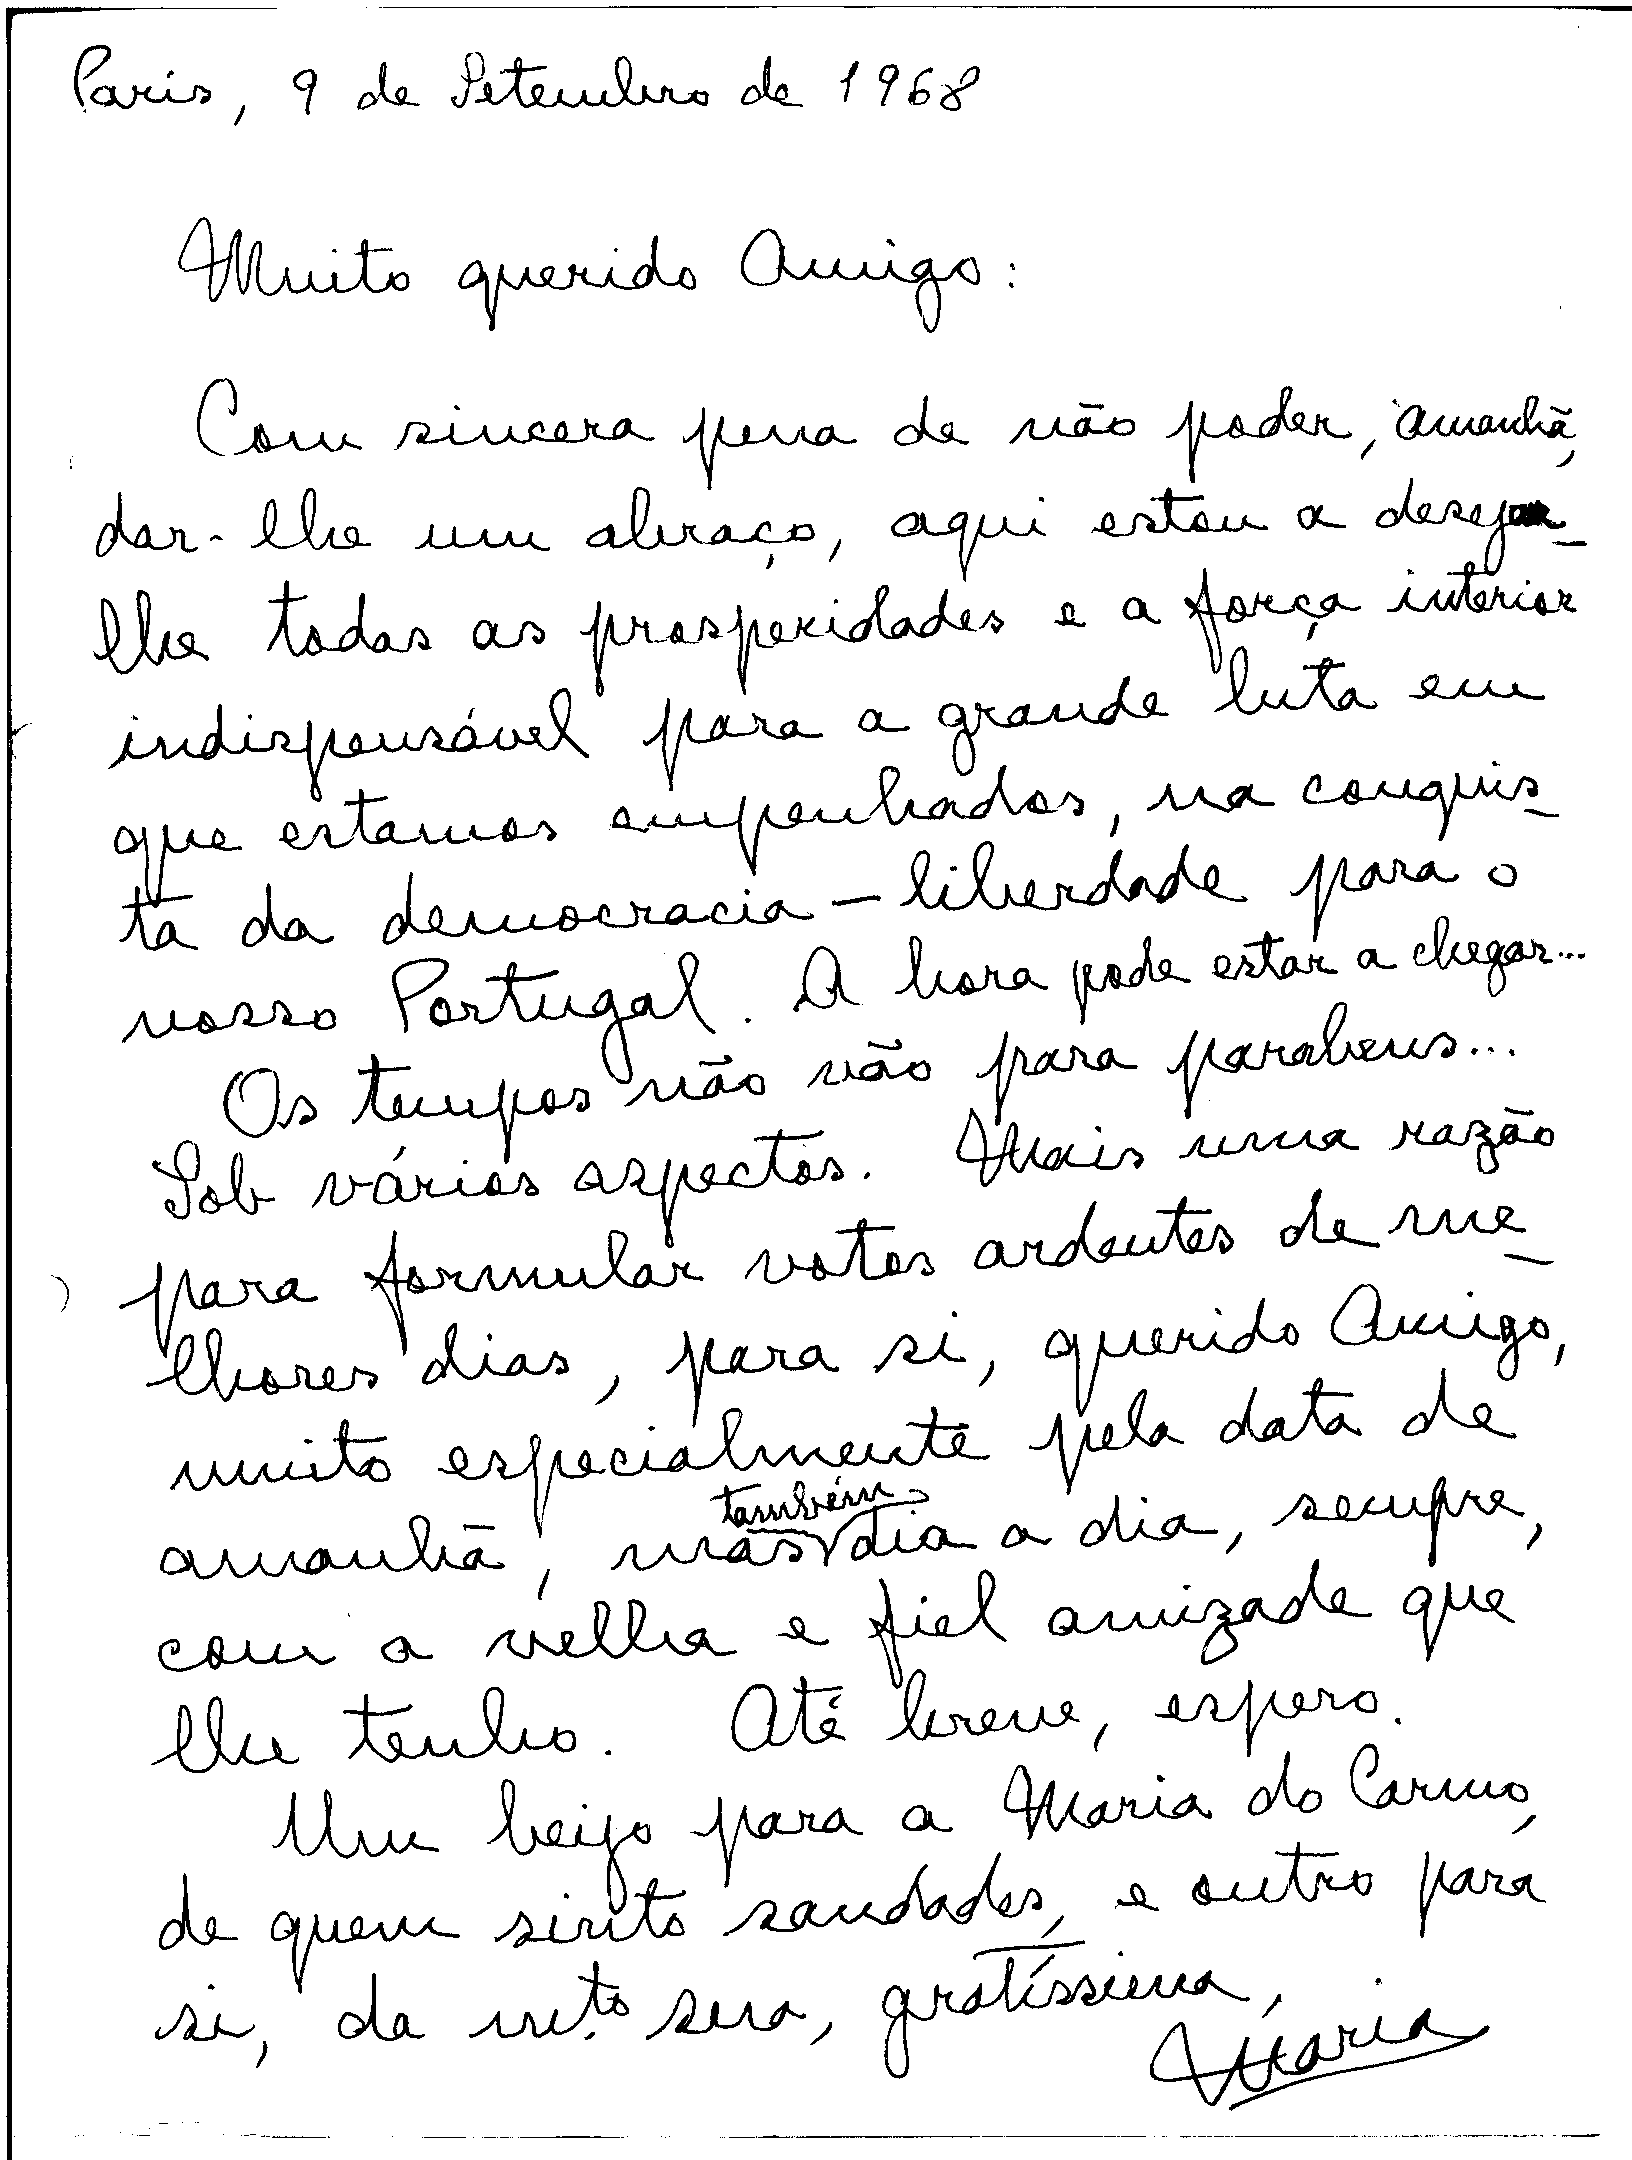 Paris, 9 de Setembro de 1968
Muito querido Amigo:
Com sincera pena de não poder, amanhã,
dar-lhe um abraço, aqui estou a desejar-
lhe todas as prosperidades e a força interior
indispensável para a grande luta em
que estamos empenhados, na conquis-
ta da democracia - liberdade para o
nosso Portugal. A hora pode estar a chegar...
Os tempos não vão para parabens...
Sob vários aspectos. Mais uma razão
para formular votos ardentes de me-
lhores dias, para si, querido Amigo,
muito especialmente pela data de
amanhã, mas também dia a dia, sempre,
com a velha e fiel amizade que
lhe tenho. Até breve, espero.
Um beijo para a Maria do Carmo,
de quem sinto saudades, e outro para
si, da mt.º sua, gratíssima,
Maria